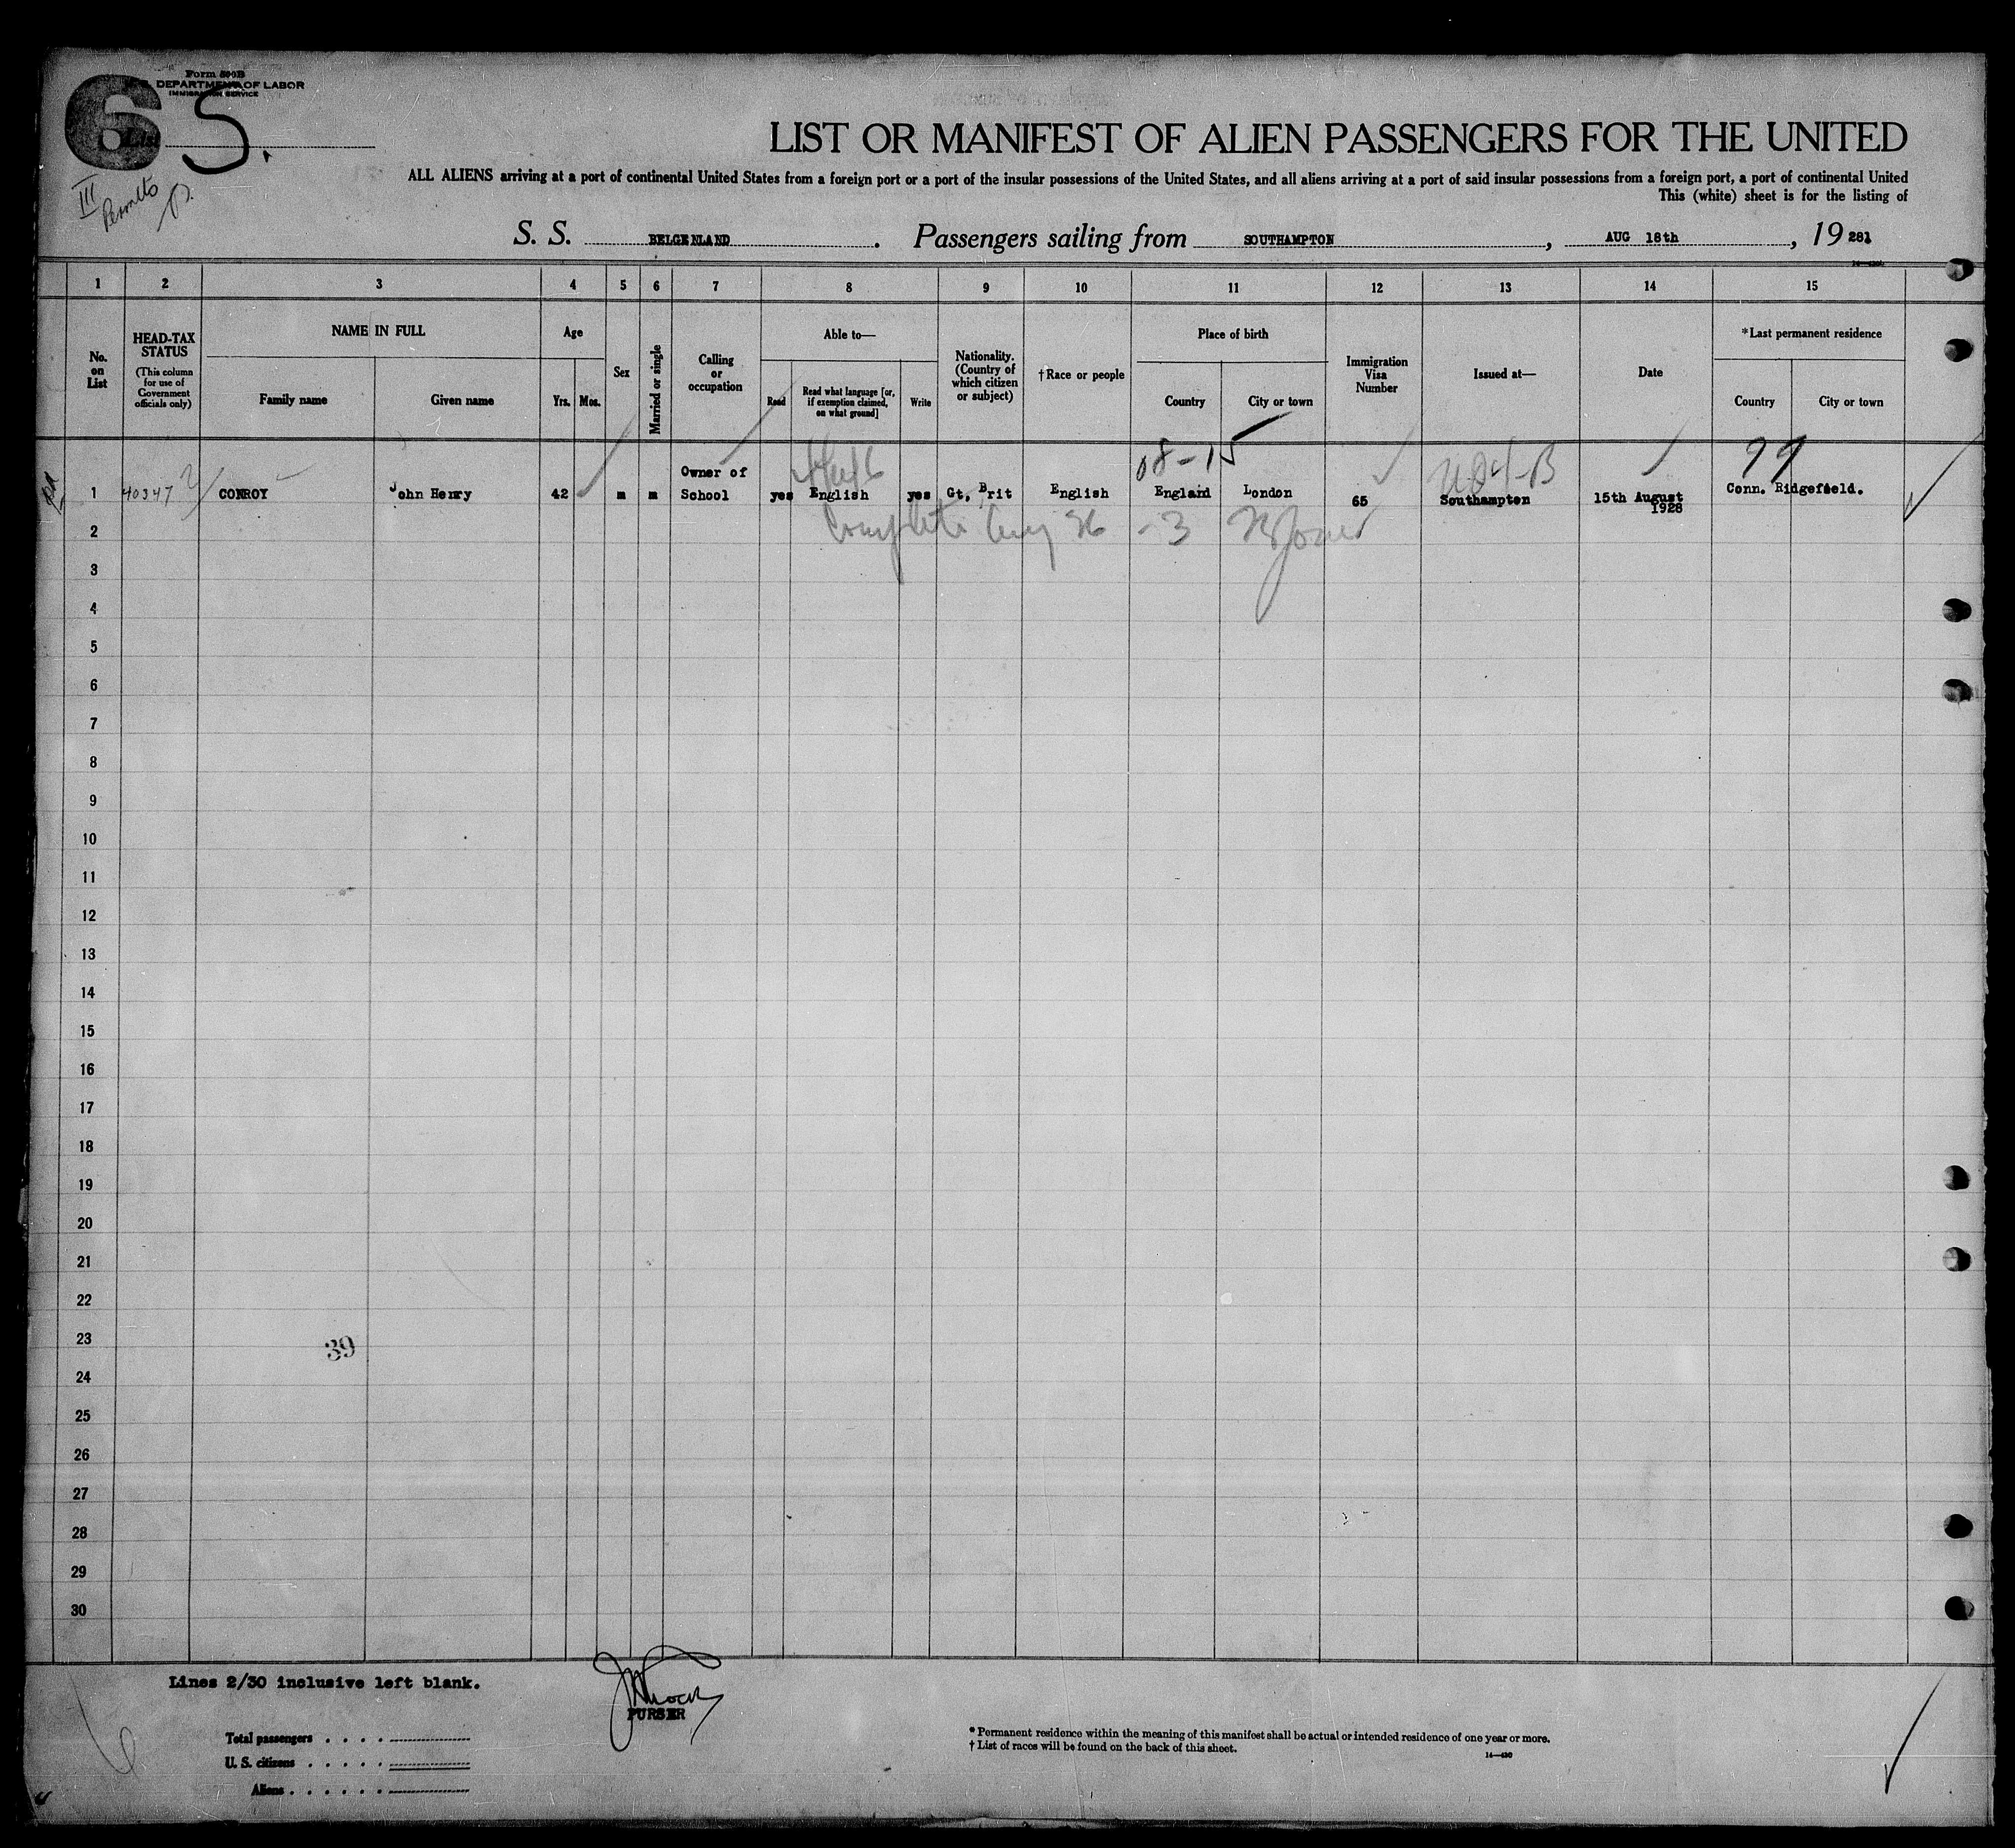 Form 500B
DEPARTMENT OF LABOR
IMMIGRATION SERVICE
6
List
5.
III
LIST OR MANIFEST OF ALIEN PASSENGERS FOR THE UNITED
ALL ALIENS arriving at a port of continental United States from a foreign port or a port of the insular possessions of the United States, and all aliens arriving at a port of said insular possessions from a foreign port, a port of continental United
This (white) sheet is for the listing of
S. S. BELGENLAND. Passengers sailing from SOUTHAMPTON, AUG 18th, 19 281
1 2 3 4 5 6 7 8 9 10 11 12 13 14 15
No. on List
HEAD-TAX STATUS
(This column for use of Government officials only)
NAME IN FULL
Family name
Given name
Age
Yrs. Mos.
Sex
Married or single
Calling or occupation
Able to—
Read
Read what language [or, if exemption claimed, on what ground]
Write
Nationality. (Country of which citizen or subject)
†Race or people
Place of birth
Country
City or town
Immigration Visa Number
Issued at—
Date
*Last permanent residence
Country
City or town
08-15
99
1 40347 CONROY John Henry 42 m m Owner of School yes English yes Gt, Brit English England London 65 Southampton 15th August 1928 Conn. Ridgefield.
Complete Aug 26 - 3
2
3
4
5
6
7
8
9
10
11
12
13
14
15
16
17
18
19
20
21
22
23
39
24
25
26
27
28
29
30
Lines 2/30 inclusive left blank.
PURSER
Total passengers . . . .
U. S. citizens . . . . .
Aliens . . . . . .
* Permanent residence within the meaning of this manifest shall be actual or intended residence of one year or more.
† List of races will be found on the back of this sheet.
14—430